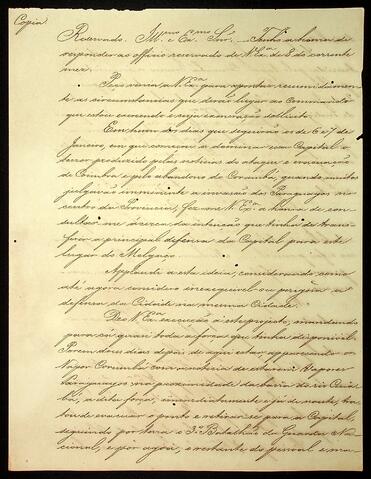 Copia
Reservado. Ill.mo e Ex.mo Snr. Tenho a honra de
responder ao officio reservado de V. Ex.a de 8 do corrente
mez.
Peço venia a V. Ex.a para apontar resumidamen
te as circunstancias que derão lugar ao Commando
que estou exercendo e cuja exoneração sollicito.
Em hum dos dias que seguirão os de 6 e 7 de
Janeiro, em que começou a dominar essa Capital o
terror produzido pelas noticias do ataque e evacuação
de Coimbra e pelo abandono de Corumbá, quando muitos
julgavão imminente a invasão dos Paraguayos no
centro da Provincia, fez-me V. Ex.a a honra de con
sultar-me ácerca da intenção que tinha de trans
ferir a principal defensa da Capital para este
lugar do Melgaço.
Applaudi a esta ideia, considerando como
até agora considero inexequivel ou perigosa a
defensa da Cidade na mesma Cidade.
Deo V. Ex.a execução a este projecto, mandando
para cá quasi toda a força que tinha disponivel.
Porem dous dias depois de aqui estar apparecendo o
Vapor Corumbá com a noticia de estarem Vapores
Paraguayos na proximidade da barra do rio Cuia
bá, a dita força, immediatamente e já de noute, tra
tou de evacuar o ponto e retirar-se para a Capital,
seguindo por terra o 3.o Batalhão da Guarda Na
cional, e por agoa, o restante do pessoal e ma-